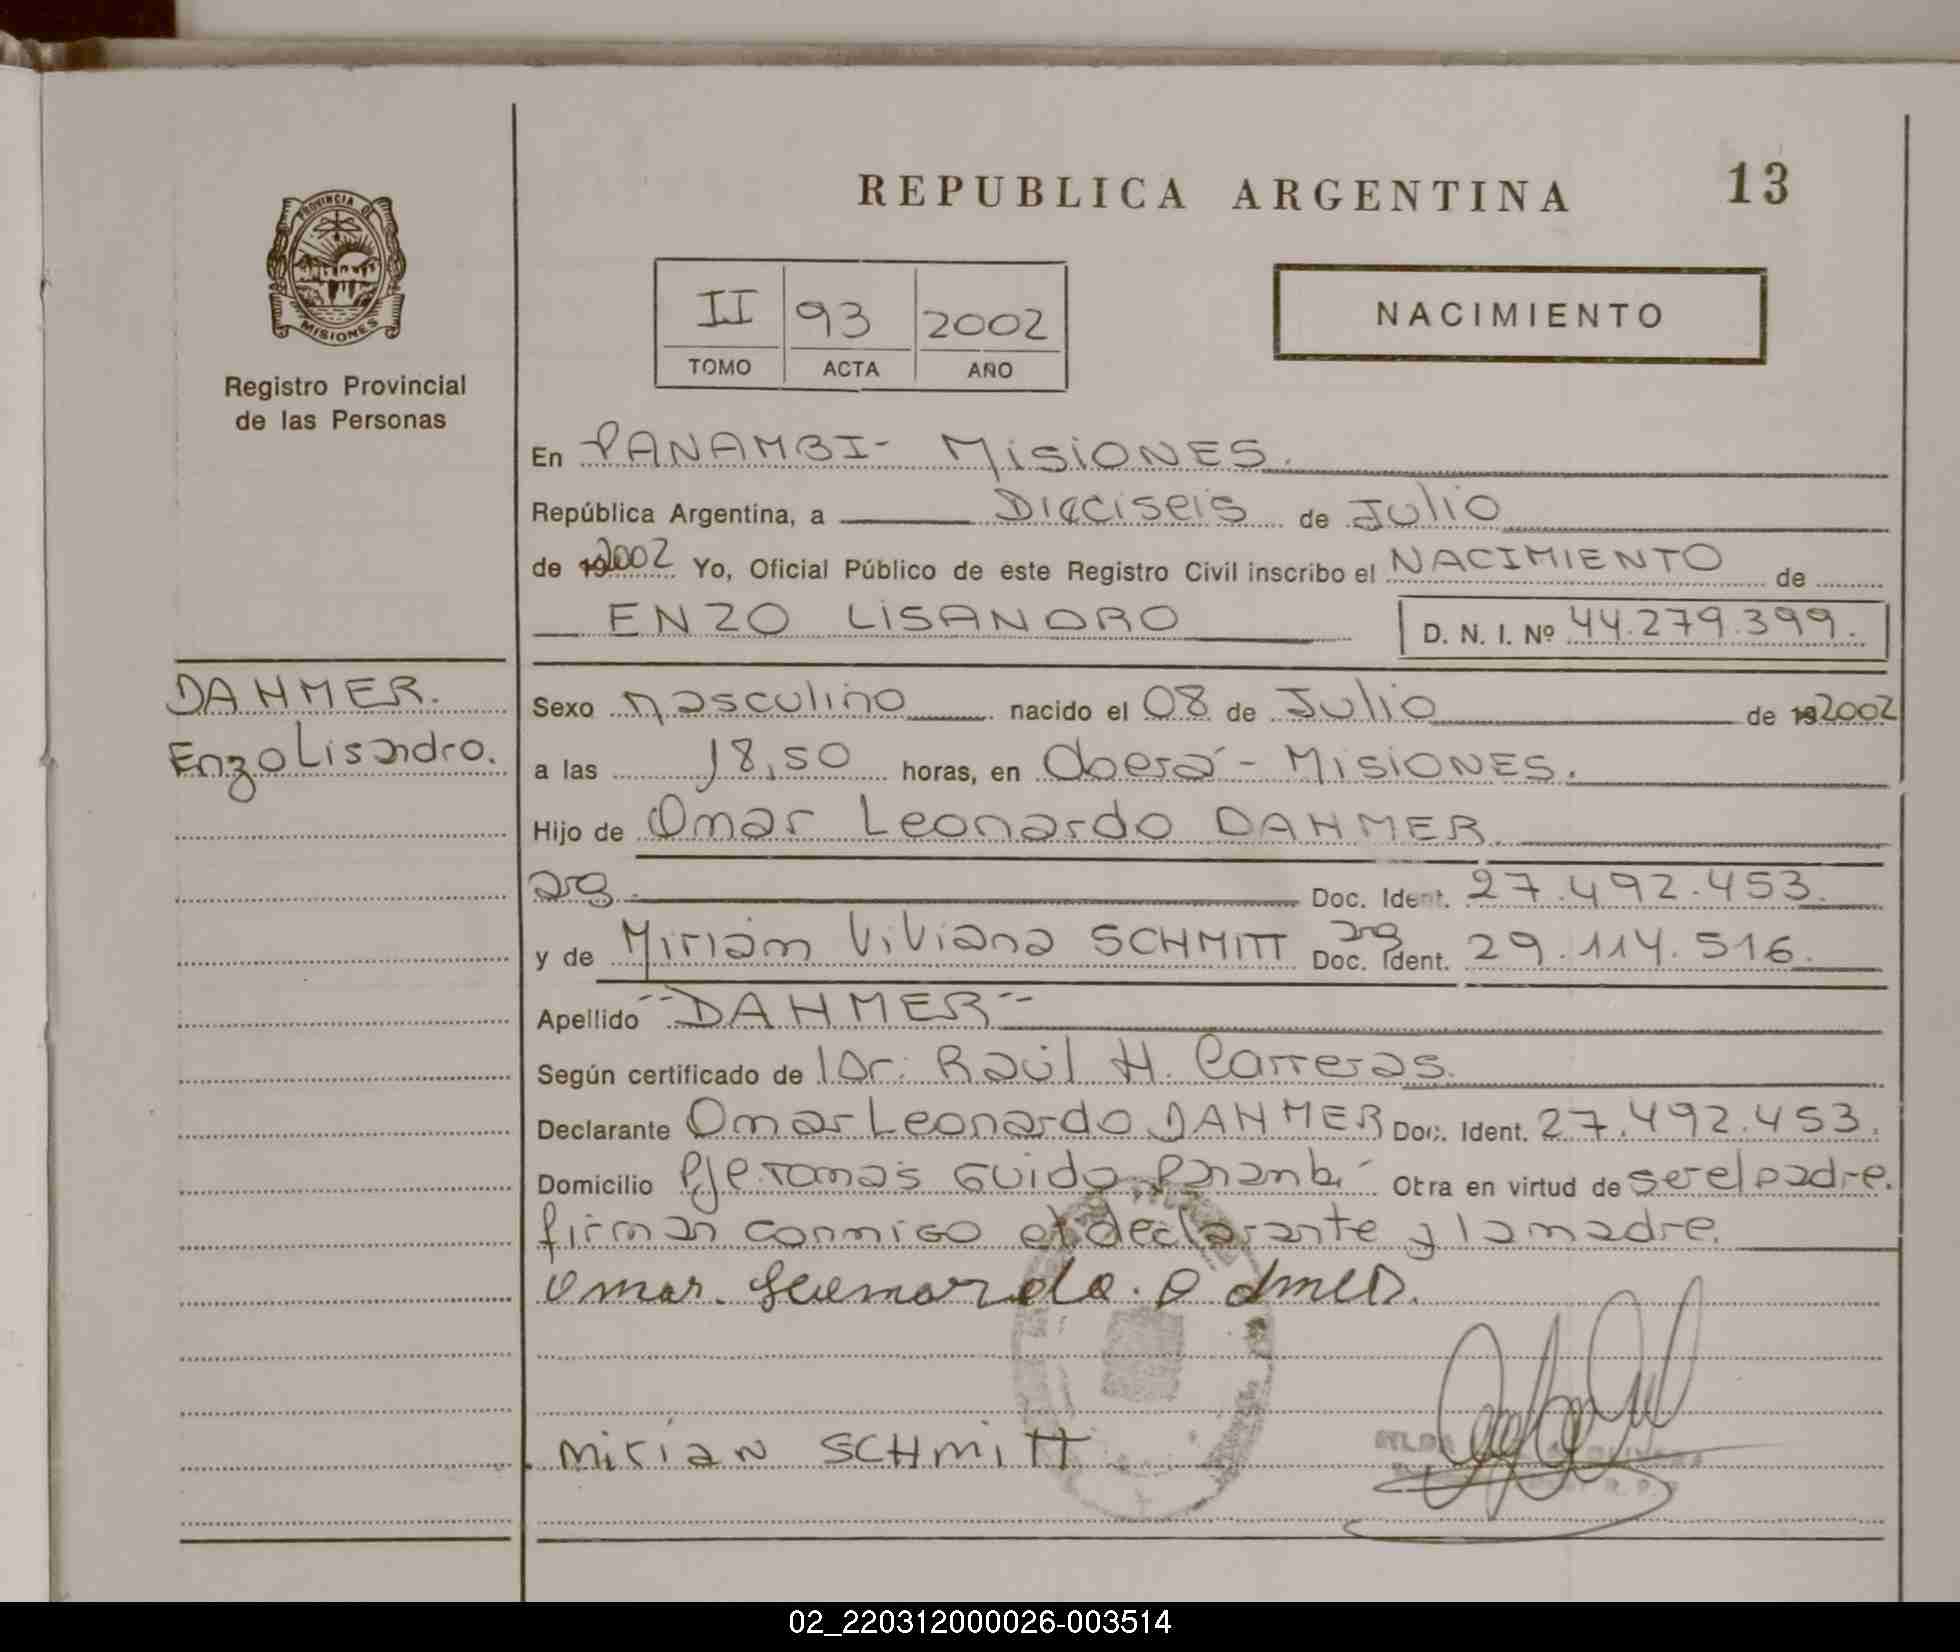 REPUBLICA ARGENTINA
13
PROVINCIA DE
MISIONES
Registro Provincial
de las Personas
II 93 2002
TOMO ACTA AÑO
NACIMIENTO
En PANAMBI- MISIONES.
República Argentina, a Dieciseis de Julio
de 192002 Yo, Oficial Público de este Registro Civil inscribo el NACIMIENTO de
ENZO LISANDRO D. N. I. Nº 44.279.399.
DAHMER.
Enzo Lisandro.
Sexo masculino nacido el 08 de Julio de 192002
a las 18,50 horas, en Oberá - MISIONES.
Hijo de Omar Leonardo DAHMER.
arg. Doc. Ident. 27.492.453.
y de Miriam Viviana SCHMITT arg Doc. Ident. 29.114.516.
Apellido "DAHMER"
Según certificado de Dr. Raúl H. Carreras.
Declarante Omar Leonardo DAHMER Doc. Ident. 27.492.453.
Domicilio Pje. Tomás Guido Panambí Otra en virtud de ser el padre.
firman conmigo el declarante y la madre.
Omar. Leonardo. D
Mirian SCHMITT
R. P. P
02_220312000026-003514